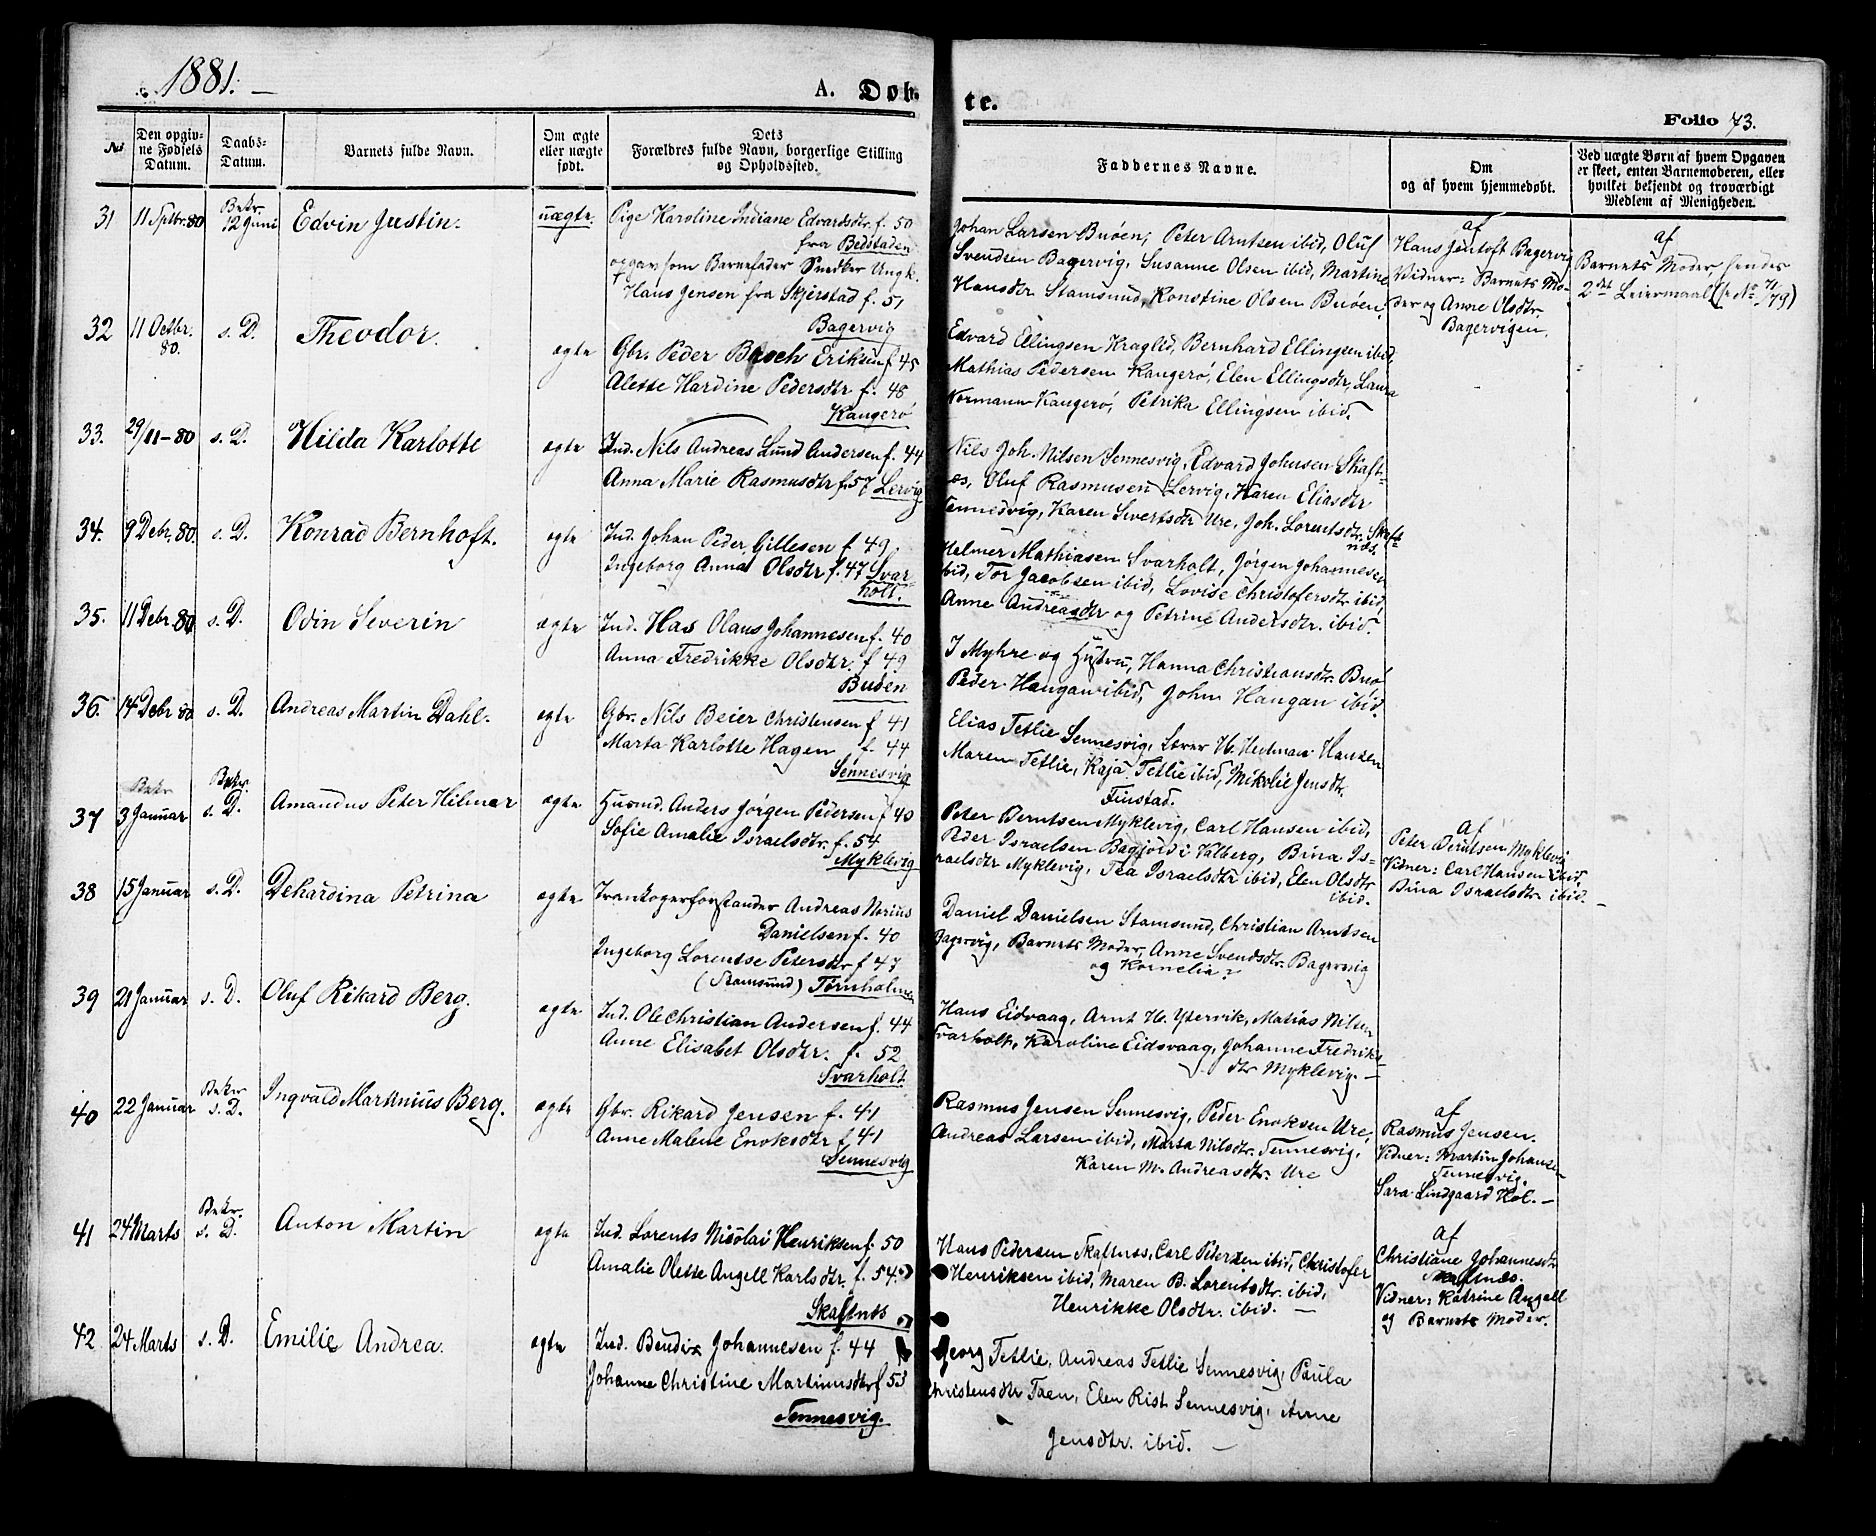 1881.
A. Døb-
te.
Folio 73.
No
Den opgivne Fødsels Datum.
Daabs-Datum.
Barnets fulde Navn.
Om ægte eller uægte født.
Dets Forældres fulde Navn, borgerlige Stilling og Opholdssted.
Faddernes Navne.
Om og af hvem hjemmedøbt.
Ved uægte Børn af hvem Opgaven er skeet, enten Barnemoderen, eller hvilket bekjendt og troværdigt Medlem af Menigheden.
31 11 Sptbr. 80 Bekr. 12 Juni Edvin Justin. uægte.
Pige Karoline Indiane Edvardsdtr. f. 50
fra Bedstaden
opgav som Barnefader Snedker Ungk.
Hans Jensen fra Skjerstad f. 51
Bagervig
Johan Larsen Buøen, Peter Arntsen ibid, Oluf
Svendsen Bagervig, Susanne Olsen ibid, Martine
Hansdtr Stamsund, Konstine Olsen Buøen.
af
Hans Jentoft Bagervig
Vidner: Barnets Mo-
der og Anne Olsdtr.
Bagervigen.
af
Barnets Moder, hendes
2det Leiermaal (fr No 71/79)
32 11 Octbr. 80. s. D. Theodor. ægte
Gbr. Peder Busch Eriksen f 45
Alette Hardine Pedersdtr f. 48
Kangerø
Edvard Ellingsen Kragled, Bernhard Ellingsen ibid,
Mathias Pedersen Kangerø, Elen Ellingsdtr, Laura
Normann Kangerø, Petrika Ellingsen ibid.
33. 29/11-80 s. D. Hilda Karlotte ægte
Ind. Nils Andreas Lund Andersen f. 44
Anna Marie Rasmusdtr f. 57 Lervig
Nils Joh. Nilsen Sennesvig, Edvard Johnsen Skaft-
næs, Oluf Rasmusen Lervig, Karen Eliasdtr
Sennesvig, Karen Sivertsdtr Ure, Joh. Lorentsdtr. Skaft-
næs.
34. 9 Debr. 80. s. D. Konrad Bernhoft. ægte
Ind. Johan Peder Gillesen f 49
Ingeborg Anna Olsdtr f. 47 Svar-
holt.
Helmer Mathiasen Svarholt, Jørgen Johannesen
ibid, Tor Jacobsen ibid, Lovise Christofersdtr ibid,
Anne Andreasdtr og Petrine Andersdtr. ibid.
35. 11 Debr. 80 s. D. Odin Severin ægte
Ind. Has Olaus Johannesen f. 40
Anna Fredrikke Olsdtr. f 49
Buøen
J Myhre og Hustru, Hanna Christiansdtr. Buø
Peder Haugan ibid, John Haugan ibid.
36. 14 Debr 80 s. D. Andreas Martin Dahl. ægte
Gbr. Nils Beier Christensen f. 41
Marta Karlotte Hagen f. 44
Sennesvig
Elias Tetlie Sennesvig, Lærer H. Hedman Hansen
Maren Tetlie, Kaja Tetlie ibid, Mikolie Jensdtr.
Finstad.
37 Bekr 3 Januar Bekr. s. D. Amandus Peter Hilmar ægte
Husmd. Anders Jørgen Pedersen f 40
Sofie Amalie Israelsdtr. f. 54
Myklevig
Peter Berntsen Myklevig, Carl Hansen ibid,
Peder Israelsen Bagjord i Valberg, Bina Is-
raelsdtr Myklevig, Tea Israelsdtr ibid, Elen Olsdtr
ibid.
af
Peter Berntsen Myklevig
Vidner: Carl Hansen ibid,
Bina Israelsdtr. ibid. –
38 15 Januar s. D. Dehardina Petrina ægte
Trankogerforstander Andreas Norius
Danielsen f. 40
Ingeborg Lorentse Petersdtr f 47
(Stamsund) Tørnholmen
Daniel Danielsen Stamsund, Christian Arntsen
Bagervig, Barnets Moder, Anne Svendsdtr. Bagervig
og Kornelia?
39 21 Januar s. D. Oluf Rikard Berg. ægte
Ind. Ole Christian Andersen f. 44
Anne Elisabet Olsdtr. f. 52
Svarholt
Hans Eidvaag, Arnt H. Ytervik, Matias Nilsen
Svarholt, Karoline Eidsvaag, Johanne Fredriks-
dtr Myklevig. –
40 22 Januar Bekr s. D. Ingvald Markmius Berg. ægte
Gbr. Rikard Jensen f. 41
Anne Malene Enoksdtr f 41
Sennesvig
Rasmus Jensen Sennesvig, Peder Enoksen Ure,
Andreas Larsen ibid, Marta Nilsdtr. Sennesvig,
Karen M. Andreasdtr. Ure
af
Rasmus Jensen.
Vidner: Martin Johansen
Sennesvig.
Sara Lindgaard Hol. –
41 24 Marts Bekr. s. D. Anton Martin ægte
Ind. Lorents Nicolai Henriksen f. 50
Amalie Olette Angell Karlsdtr. f. 54.
Skaftnes
Hans Pedersen Skaftnæs, Carl Petersen ibid, Christofer
Henriksen ibid, Maren B. Lorentsdtr. ibid,
Henrikke Olsdtr. ibid. –
af
Christiane Johannesdtr
Skaftnæs.
Vidner: Katrine Angell
og Barnets Moder.
42 24 Marts s. D. Emilie Andrea. ægte
Ind. Bendix Johannesen f. 44
Johanne Christine Martinusdtr f 53
Sennesvig.
Georg Tetlie, Andreas Tetlie Sennesvig, Paula
Christensdtr Taen, Elen Rist Sennesvig, Anne
Jensdtr. ibid. –